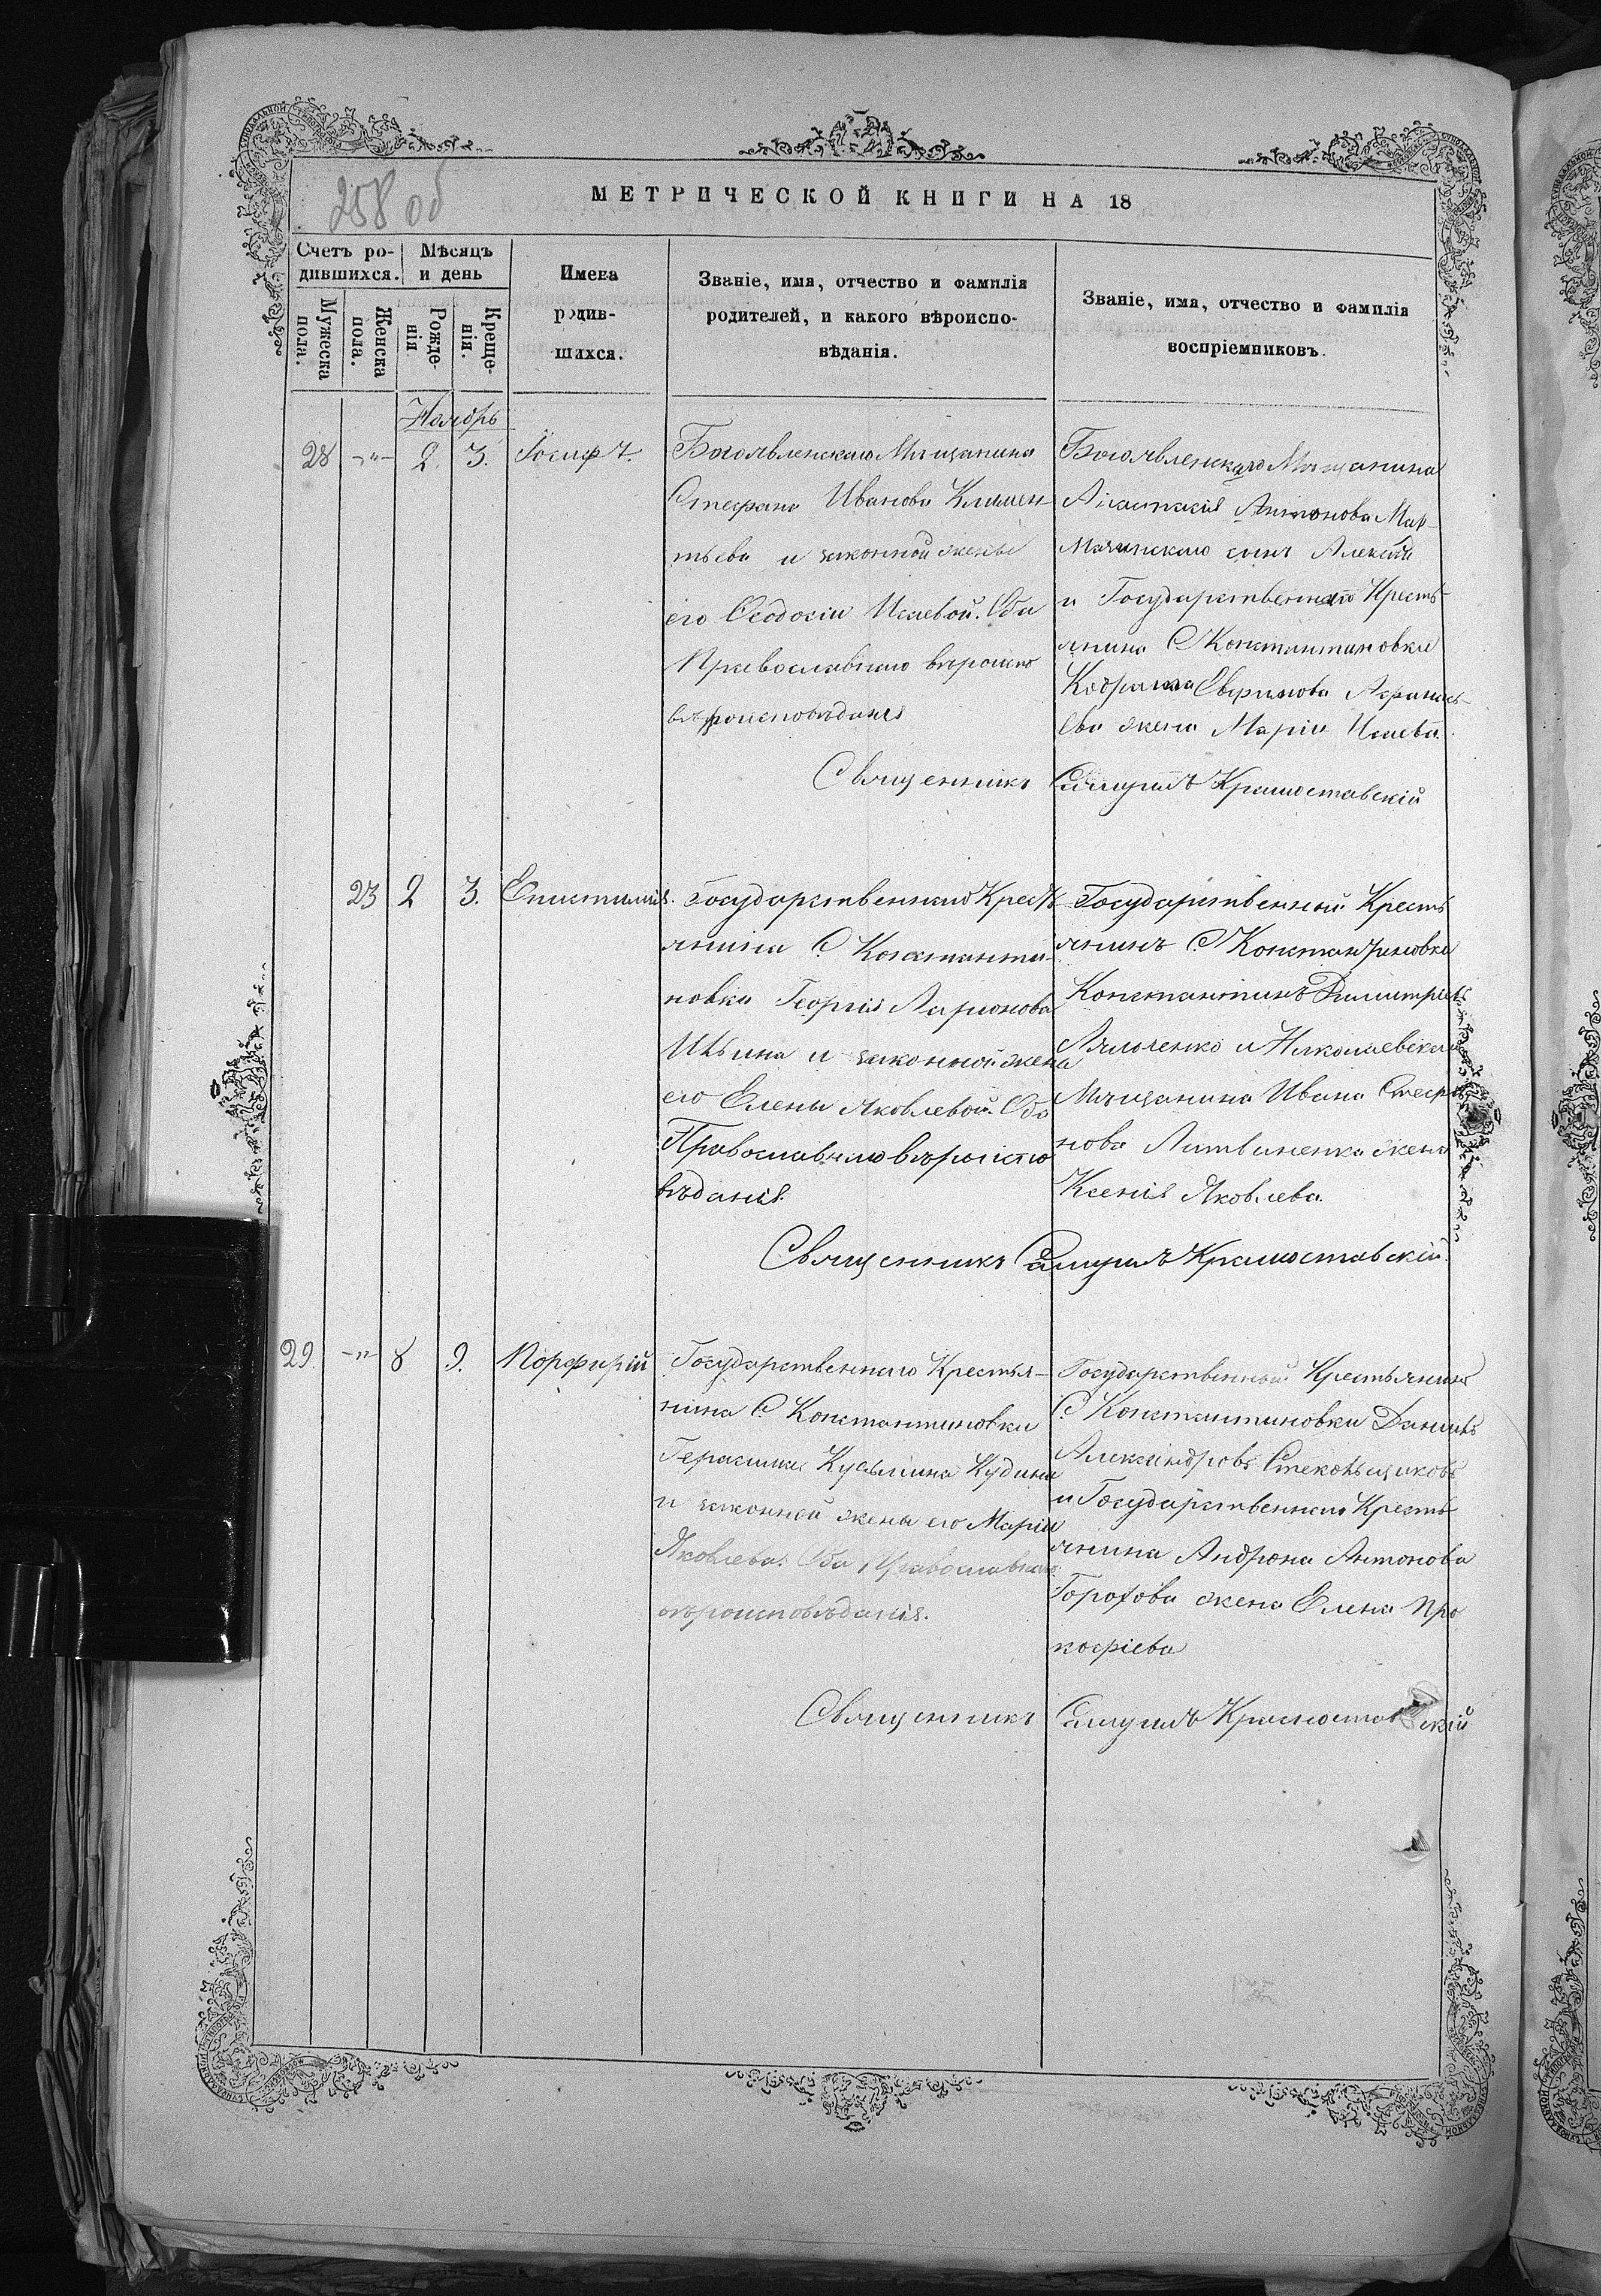 258 об
МЕТРИЧЕСКОЙ КНИГИ НА 18
Счетъ ро-
дившихся.
Мѣсяцъ
и день
Мужеска
пола.
Женска
пола.
Рожде-
нія
Креще-
нія.
Имена
родив-
шихся.
Званіе, имя, отчество и фамилія
родителей, и какого вѣроиспо-
вѣданія.
Званіе, имя, отчество и фамилія
воспріемниковъ.
Ноябрь
28 -"- 2. 3. Іосифъ.
Богоявленскаго Мѣщанина
Стефана Иванова Климен-
тьева и законной жены
его Ѳеодосіи Исаевой. Оба
Православнаго вѣроиспо
вѣроисповѣданія
Богоявленскаго Мѣщанина
Антонова Мар-
сынъ Алексѣй
и Государственнаго Кресть-
янина С Константиновки
Кодрата Евфимова Афанась-
ева жена Марія Исаева.
Священникъ Самуилъ Красноставскій
23 2 3. Епистимія.
Государственнаго Кресть-
янина С. Константи-
новки Георгія Ларіонова
Ильина и законной жены
его Елены Яковлевой. Оба
Православнаго вѣроиспо
вѣданія.
Государственный Кресть
янинъ С. Константиновки
Константинъ Димитріевъ
и Николаевскаго
Мѣщанина Ивана Стефа
нова Литвиненка жена
Ксенія Яковлева.
Священникъ Самуилъ Красноставскій.
29. -"- 8 9. Порфирій
Государственнаго Крестья-
нина С. Константиновки
Герасима Кузьмина Кудина
и законной жены его Маріи
Яковлева. Оба Православнаго
вѣроисповѣданія.
Государственный Крестьянинъ
С. Константиновки Данилъ
Александровъ Стекольщиковъ
и Государственнаго Кресть
янина Андрона Антонова
Горохова жена Елена Про
кофіева
Священникъ Самуилъ Красноставскій